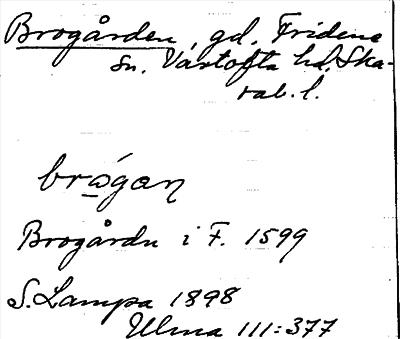 Brogården, gd, Fridene
sn. Vartofta hd, Ska-
rab. l.
brǫ́gan
Brogårdn i F. 1599
S. Lampa 1898
Ulma 111:377